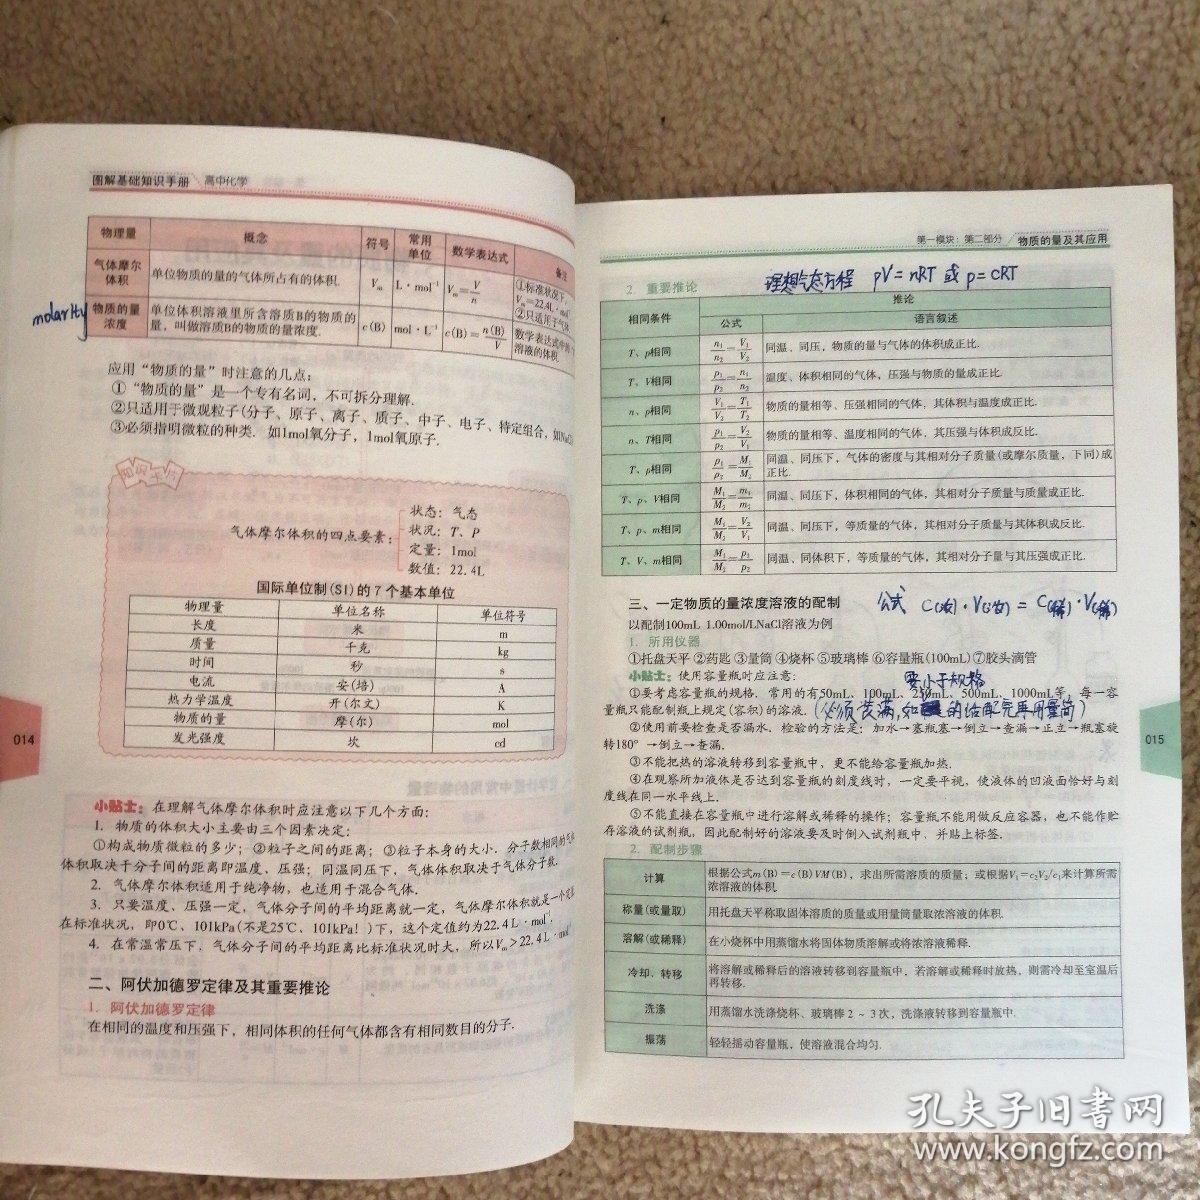 图解基础知识手册 高中化学
物理量 概念 符号 常用单位 数学表达式 备注
气体摩尔体积 单位物质的量的气体所占有的体积. Vm L·mol⁻¹ Vm=V/n ①标准状况下,
Vm=22.4L·mol
②只适用于气体
molarity
物质的量浓度 单位体积溶液里所含溶质B的物质的量, 叫做溶质B的物质的量浓度. c(B) mol·L⁻¹ c(B)=n(B)/V 数学表达式中的
溶液的体积
应用“物质的量”时注意的几点:
①“物质的量”是一个专有名词, 不可拆分理解.
②只适用于微观粒子(分子、原子、离子、质子、中子、电子、特定组合, 如NaCl
③必须指明微粒的种类. 如1mol氧分子, 1mol氧原子.
知识卡片
气体摩尔体积的四点要素:
状态: 气态
状况: T、P
定量: 1mol
数值: 22.4L
国际单位制(SI)的7个基本单位
物理量 单位名称 单位符号
长度 米 m
质量 千克 kg
时间 秒 s
电流 安(培) A
热力学温度 开(尔文) K
物质的量 摩(尔) mol
发光强度 坎 cd
014
小贴士: 在理解气体摩尔体积时应注意以下几个方面:
1. 物质的体积大小主要由三个因素决定:
①构成物质微粒的多少; ②粒子之间的距离; ③粒子本身的大小. 分子数相同的气
体体积取决于分子间的距离即温度、压强; 同温同压下, 气体体积取决于气体分子数.
2. 气体摩尔体积适用于纯净物, 也适用于混合气体.
3. 只要温度、压强一定, 气体分子间的平均距离就一定, 气体摩尔体积就是一个定
在标准状况, 即0℃、101kPa(不是25℃、101kPa!)下, 这个定值约为22.4L·mol⁻¹.
4. 在常温常压下, 气体分子间的平均距离比标准状况时大, 所以Vm>22.4L·mol⁻¹
二、阿伏加德罗定律及其重要推论
1. 阿伏加德罗定律
在相同的温度和压强下, 相同体积的任何气体都含有相同数目的分子.
第一模块: 第二部分 物质的量及其应用
理想气态方程 pV=nRT 或 p=cRT
2. 重要推论
相同条件 推论
公式 语言叙述
T、p相同 n₁/n₂=V₁/V₂ 同温、同压, 物质的量与气体的体积成正比.
T、V相同 p₁/p₂=n₁/n₂ 温度、体积相同的气体, 压强与物质的量成正比.
n、p相同 V₁/V₂=T₁/T₂ 物质的量相等、压强相同的气体, 其体积与温度成正比.
n、T相同 p₁/p₂=V₂/V₁ 物质的量相等、温度相同的气体, 其压强与体积成反比.
T、p相同 ρ₁/ρ₂=M₁/M₂ 同温、同压下, 气体的密度与其相对分子质量(或摩尔质量, 下同)成正比.
T、p、V相同 M₁/M₂=m₁/m₂ 同温、同压下, 体积相同的气体, 其相对分子质量与质量成正比.
T、p、m相同 M₁/M₂=V₂/V₁ 同温、同压下, 等质量的气体, 其相对分子质量与其体积成反比.
T、V、m相同 M₁/M₂=p₂/p₂ 同温、同体积下, 等质量的气体, 其相对分子量与其压强成正比.
三、一定物质的量浓度溶液的配制 公式 C(浓)·V(浓)=C(稀)·V(稀)
以配制100mL 1.00mol/LNaCl溶液为例
1. 所用仪器
①托盘天平 ②药匙 ③量筒 ④烧杯 ⑤玻璃棒 ⑥容量瓶(100mL) ⑦胶头滴管
小贴士: 使用容量瓶时应注意:
要小于规格
①要考虑容量瓶的规格. 常用的有50mL、100mL、250mL、500mL、1000mL等, 每一容
量瓶只能配制瓶上规定(容积)的溶液. (必须装满, 如
②使用前要检查是否漏水. 检验的方法是: 加水→塞瓶塞→倒立→查漏→正立→瓶塞旋
转180°→倒立→查漏.
③不能把热的溶液转移到容量瓶中, 更不能给容量瓶加热.
④在观察所加液体是否达到容量瓶的刻度线时, 一定要平视, 使液体的凹液面恰好与刻
度线在同一水平线上.
⑤不能直接在容量瓶中进行溶解或稀释的操作; 容量瓶不能用做反应容器, 也不能作贮
存溶液的试剂瓶, 因此配制好的溶液要及时倒入试剂瓶中, 并贴上标签.
015
2. 配制步骤
计算 根据公式m(B)=c(B)VM(B), 求出所需溶质的质量; 或根据V₁=c₂V₂/c₁来计算所需浓溶液的体积.
称量(或量取) 用托盘天平称取固体溶质的质量或用量筒量取浓溶液的体积.
溶解(或稀释) 在小烧杯中用蒸馏水将固体物质溶解或将浓溶液稀释.
冷却、转移 将溶解或稀释后的溶液转移到容量瓶中. 若溶解或稀释时放热, 则需冷却至室温后再转移.
洗涤 用蒸馏水洗涤烧杯、玻璃棒2~3次, 洗涤液转移到容量瓶中.
振荡 轻轻摇动容量瓶, 使溶液混合均匀.
孔夫子旧书网
www.kongfz.com